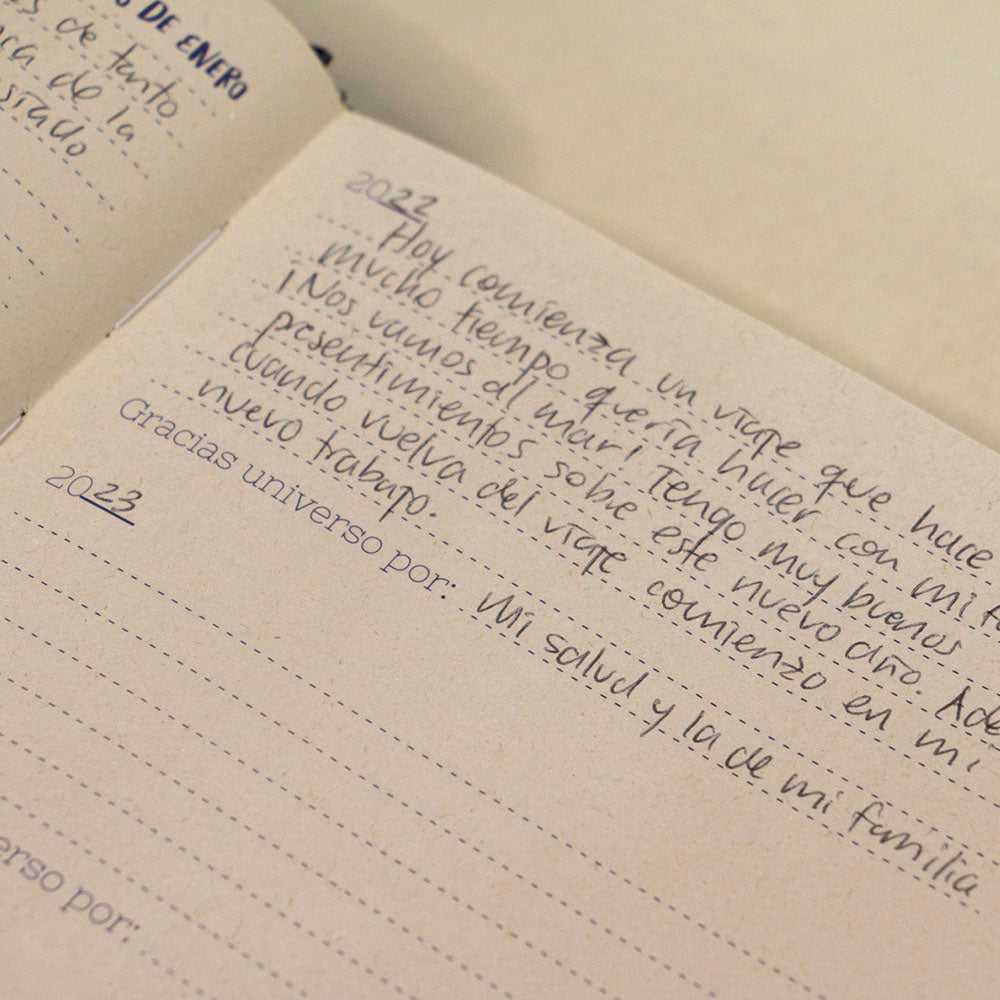 DE ENERO
de tanto
de la
2022
Hoy comienza un viaje que hace
mucho tiempo quería hacer con mi
¡Nos vamos al mar! Tengo muy buenos
presentimientos sobre este nuevo año.
cuando vuelva del viaje comienzo en mi
nuevo trabajo.
Gracias universo por: Mi salud y la de mi familia
2023
por: